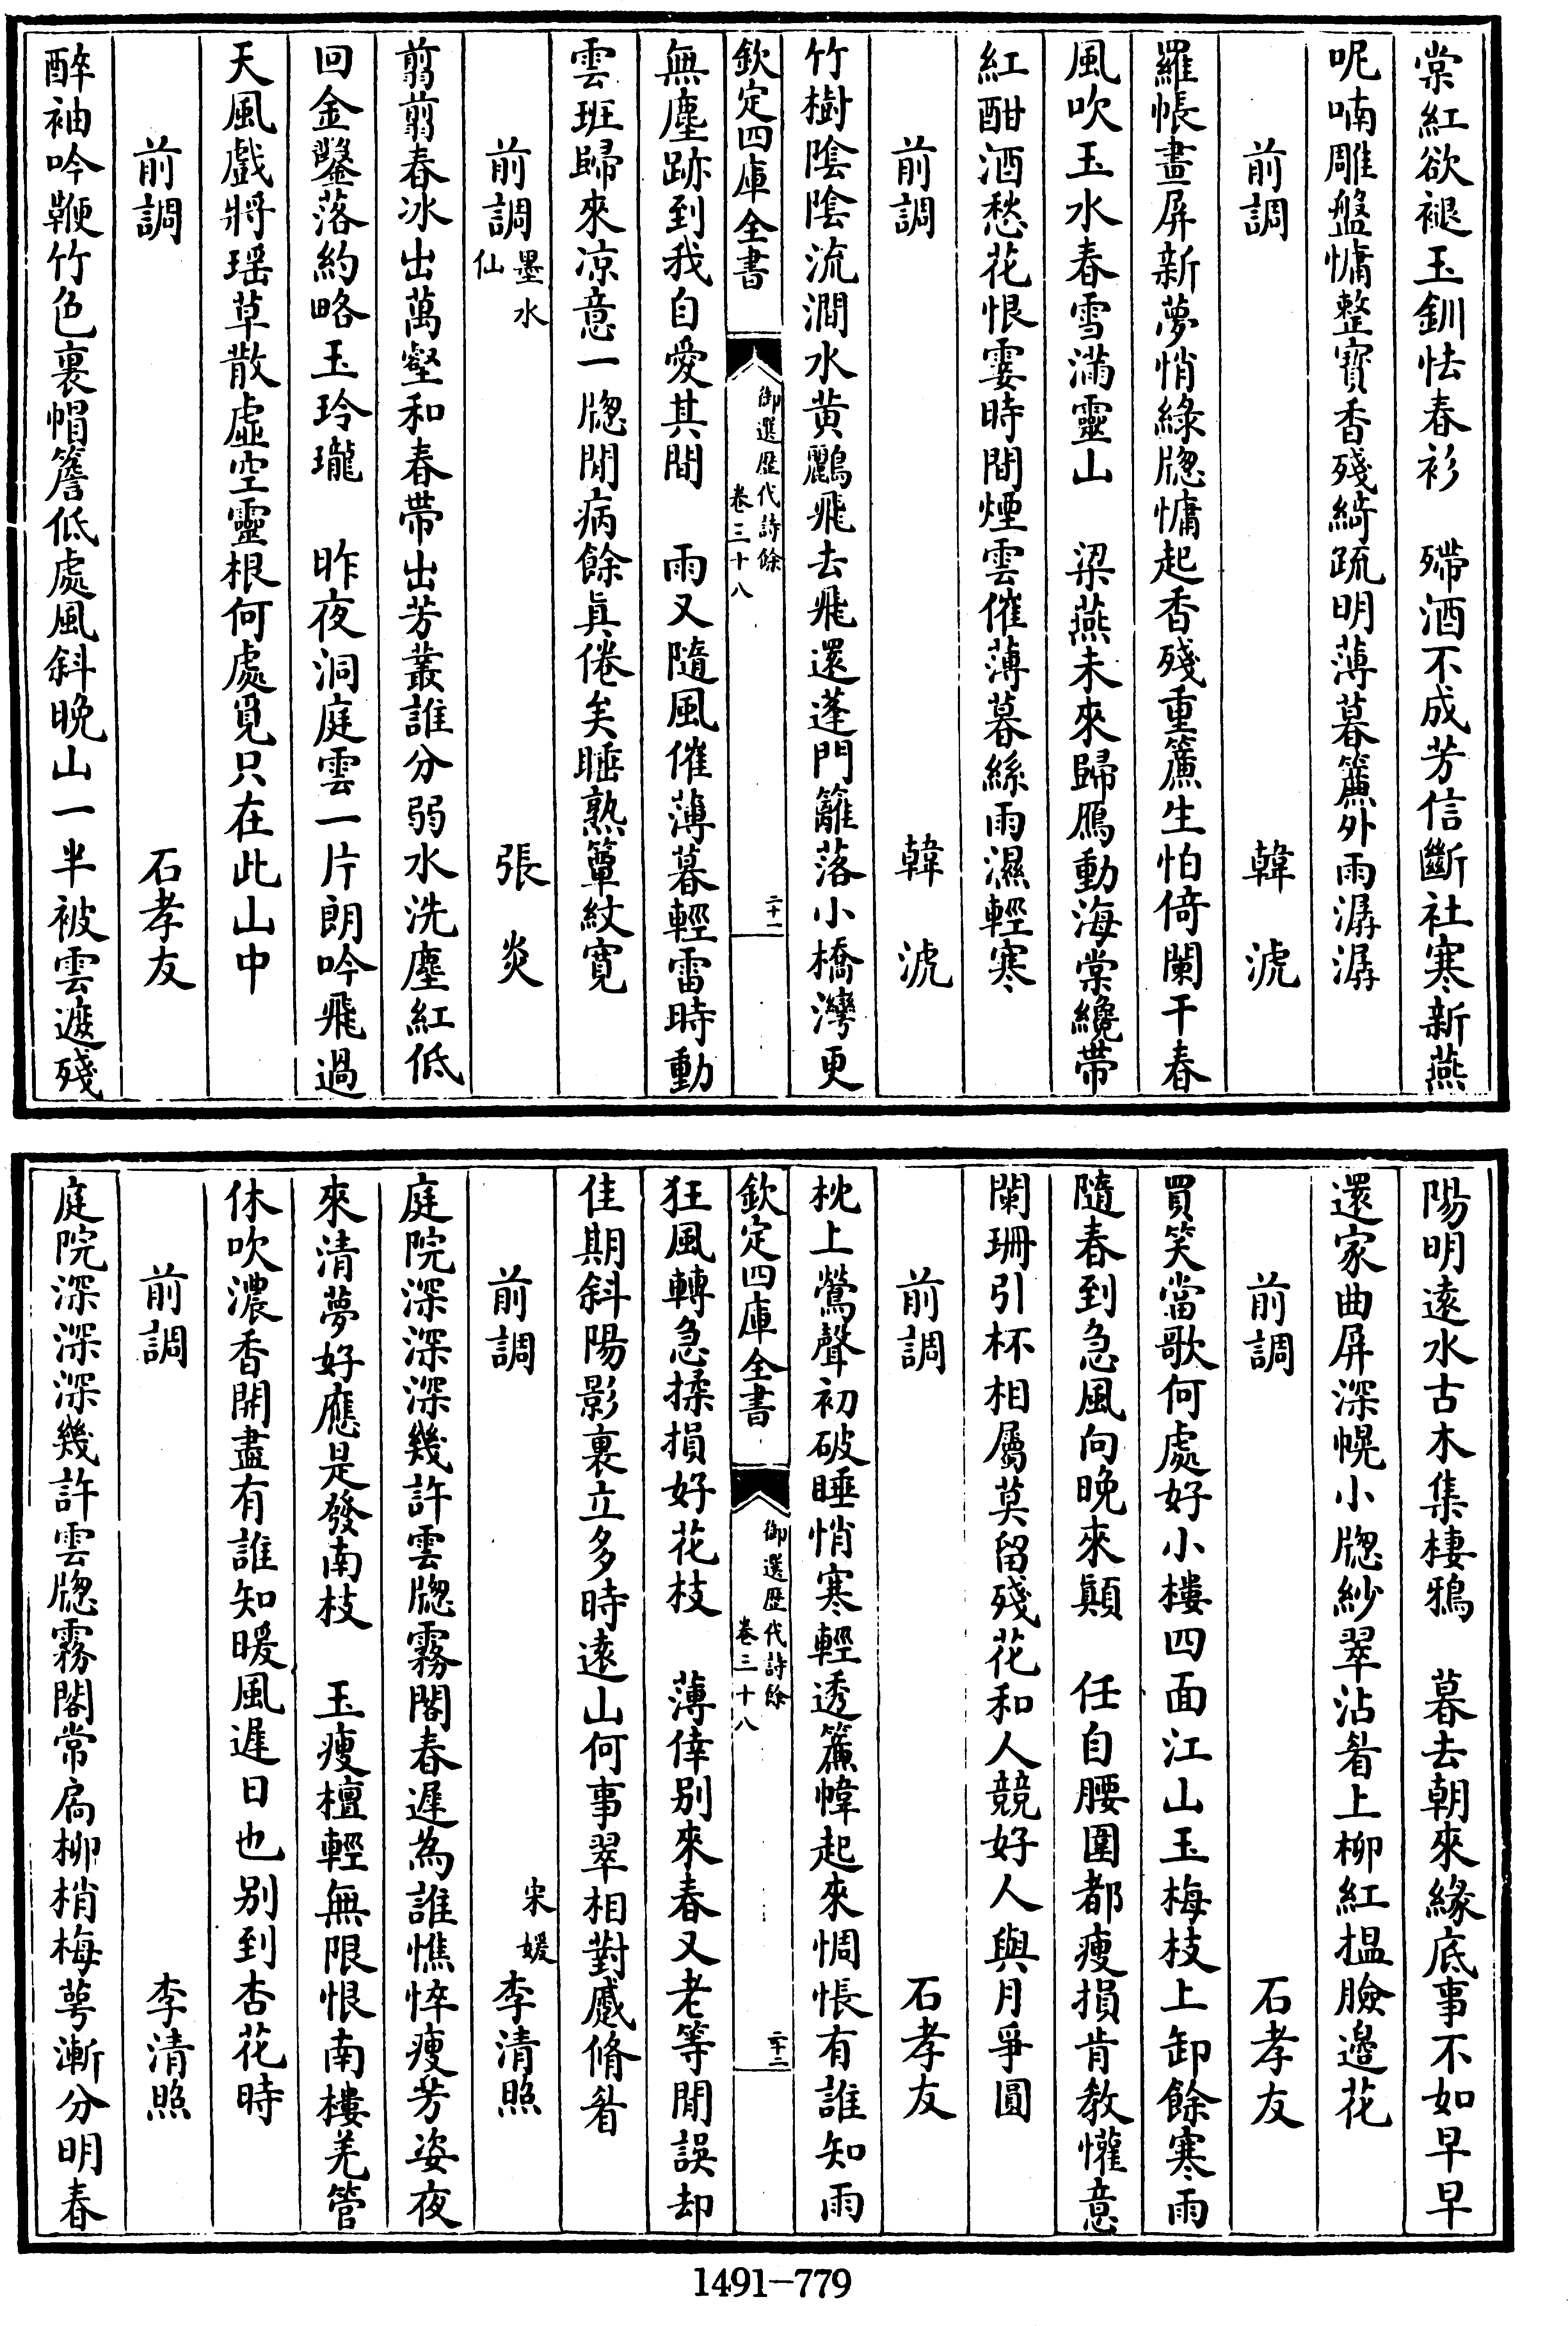 棠紅欲褪玉釧怯春衫　殢酒不成芳信斷社寒新燕
呢喃雕盤慵整寶香殘綺疏明薄暮簾外雨潺潺
前調　韓淲
羅帳畫屏新夢悄綠牎慵起香殘重簾生怕倚闌干春
風吹玉水春雪滿靈山　梁燕未來歸鴈動海棠纔帶
紅酣酒愁花恨霎時間煙雲催薄暮絲雨濕輕寒
前調　韓淲
竹樹陰陰流澗水黄鸝飛去飛還蓬門籬落小橋灣更
欽定四庫全書
御選歴代詩餘
卷三十八
二十一
無塵跡到我自愛其間　雨又隨風催薄暮輕雷時動
雲班歸來凉意一牎閒病餘眞倦矣睡熟簟紋寛
前調墨水仙　張炎
翦翦春冰出萬壑和春帶出芳叢誰分弱水洗塵紅低
回金鑿落約略玉玲瓏　昨夜洞庭雲一片朗吟飛過
天風戲將瑶草散虚空靈根何處覓只在此山中
前調　石孝友
醉袖吟鞭竹色裏帽簷低處風斜晚山一半被雲遮殘
陽明遠水古木集棲鴉　暮去朝來緣底事不如早早
還家曲屏深幌小牎紗翠沾眉上柳紅揾臉邉花
前調　石孝友
買笑當歌何處好小樓四面江山玉梅枝上卸餘寒雨
隨春到急風向晚來顛　任自腰圍都瘦損肯教懽意
闌珊引杯相屬莫留殘花和人競好人與月爭圓
前調　石孝友
枕上鶯聲初破睡悄寒輕透簾幃起來惆悵有誰知雨
欽定四庫全書
御選歴代詩餘
卷三十八
二十二
狂風轉急揉損好花枝　薄倖别來春又老等閒誤却
佳期斜陽影裏立多時遠山何事翠相對蹙脩眉
前調　宋媛李清照
庭院深深深幾許雲牎霧閣春遲為誰憔悴瘦芳姿夜
來清夢好應是發南枝　玉瘦檀輕無限恨南樓羌管
休吹濃香開盡有誰知暖風遲日也别到杏花時
前調　李清照
庭院深深深幾許雲牎霧閣常扃柳梢梅萼漸分明春
1491-779